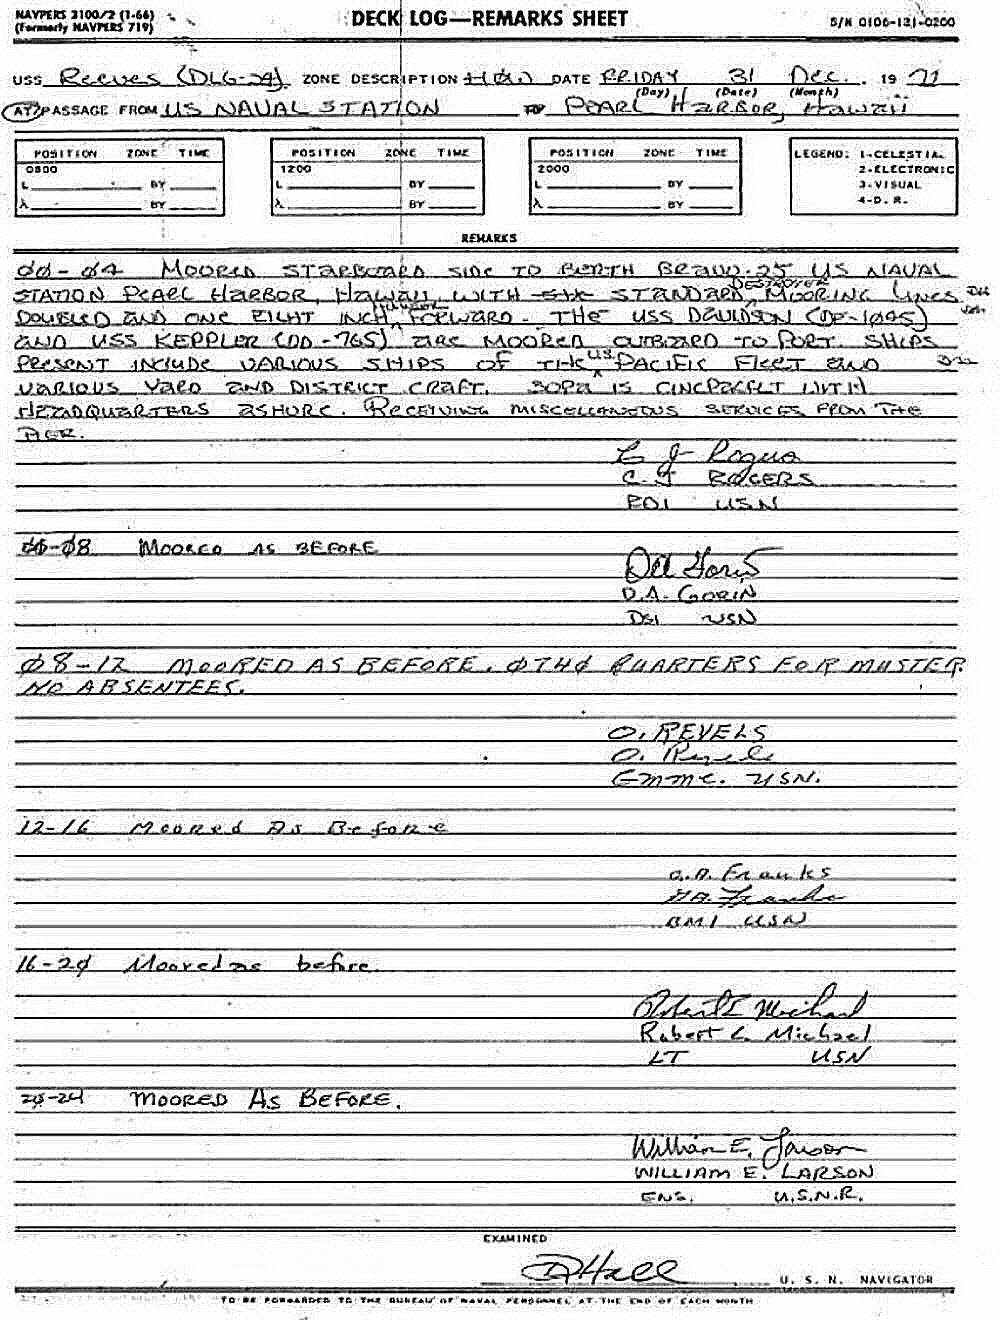 NAVPERS 3100/2 (1-66)
(Formerly NAVPERS 719)
DECK LOG—REMARKS SHEET
S/N 0106-121-0200
USS Reeves (DLG-24) ZONE DESCRIPTION +10W DATE FRIDAY 31 Dec. 19 71
(Day) (Date) (Month)
AT/PASSAGE FROM US NAVAL STATION TO PEARL HARBOR, HAWAII
POSITION ZONE TIME
0800
L BY
λ BY
POSITION ZONE TIME
1200
L BY
λ BY
POSITION ZONE TIME
2000
L BY
λ BY
LEGEND: 1-CELESTIAL
2-ELECTRONIC
3-VISUAL
4-D. R.
REMARKS
00-04 MOORED STARBOARD SIDE TO BERTH BRAVO-25 US NAVAL
STATION PEARL HARBOR, HAWAII, WITH SIX STANDARD DESTROYER MOORING LINES
DOUBLED AND ONE EIGHT INCH FORWARD. THE USS DAVIDSON (DE-1045)
AND USS KEPPLER (DD-765) ARE MOORED OUTBOARD TO PORT. SHIPS
PRESENT INCLUDE VARIOUS SHIPS OF THE U.S. PACIFIC FLEET AND
VARIOUS YARD AND DISTRICT CRAFT. SOPA IS CINCPACFLT WITH
HEADQUARTERS ASHORE. RECEIVING MISCELLANEOUS SERVICES FROM THE
PIER.
C J Rogers
C. J ROGERS
RD1 USN
04-08 MOORED AS BEFORE
DA Gorin
D.A. GORIN
DS1 USN
08-12 MOORED AS BEFORE. 0740 QUARTERS FOR MUSTER
NO ABSENTEES.
O. REVELS
O. Revels
GMMC. USN.
12-16 Moored As Before
G.A. Franks
G.A. Franks
BM1 USN
16-20 Moored as before.
Robert L Michael
Robert L. Michael
LT USN
20-24 MOORED AS BEFORE.
William E. Larson
WILLIAM E. LARSON
ENS. U.S.N.R.
EXAMINED
D Hall
U. S. N. NAVIGATOR
TO BE FORWARDED TO THE BUREAU OF NAVAL PERSONNEL AT THE END OF EACH MONTH